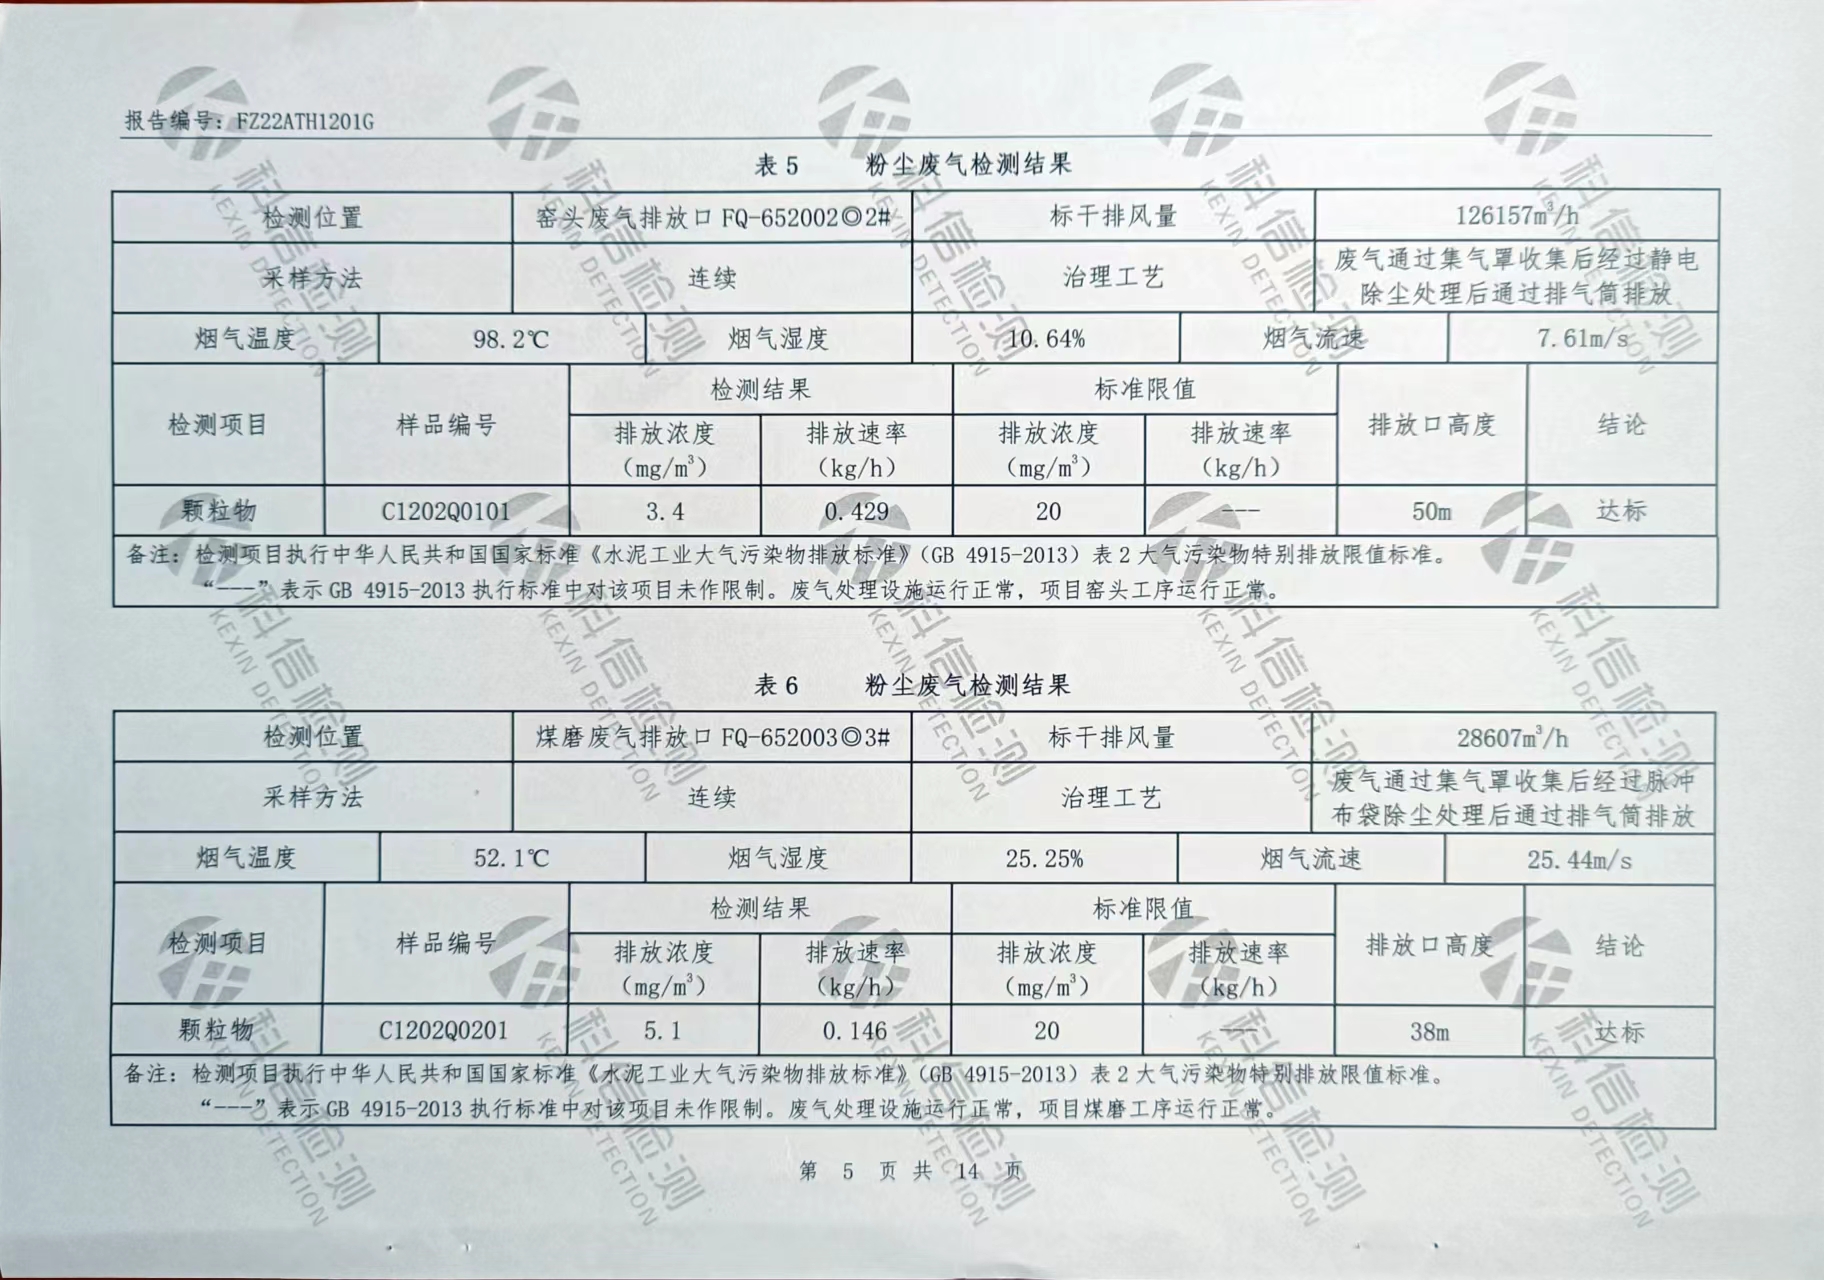 报告编号：FZ22ATH1201G
表 5 粉尘废气检测结果
检测位置 窑头废气排放口 FQ-652002◎2# 标干排风量 126157m³/h
采样方法 连续 治理工艺 废气通过集气罩收集后经过静电
除尘处理后通过排气筒排放
烟气温度 98.2℃ 烟气湿度 10.64% 烟气流速 7.61m/s
检测项目 样品编号 检测结果 标准限值 排放口高度 结论
排放浓度 排放速率 排放浓度 排放速率
（mg/m³） （kg/h） （mg/m³） （kg/h）
颗粒物 C1202Q0101 3.4 0.429 20 --- 50m 达标
备注：检测项目执行中华人民共和国国家标准《水泥工业大气污染物排放标准》（GB 4915-2013）表 2 大气污染物特别排放限值标准。
“---”表示 GB 4915-2013 执行标准中对该项目未作限制。废气处理设施运行正常，项目窑头工序运行正常。
表 6 粉尘废气检测结果
检测位置 煤磨废气排放口 FQ-652003◎3# 标干排风量 28607m³/h
采样方法 连续 治理工艺 废气通过集气罩收集后经过脉冲
布袋除尘处理后通过排气筒排放
烟气温度 52.1℃ 烟气湿度 25.25% 烟气流速 25.44m/s
检测项目 样品编号 检测结果 标准限值 排放口高度 结论
排放浓度 排放速率 排放浓度 排放速率
（mg/m³） （kg/h） （mg/m³） （kg/h）
颗粒物 C1202Q0201 5.1 0.146 20 --- 38m 达标
备注：检测项目执行中华人民共和国国家标准《水泥工业大气污染物排放标准》（GB 4915-2013）表 2 大气污染物特别排放限值标准。
“---”表示 GB 4915-2013 执行标准中对该项目未作限制。废气处理设施运行正常，项目煤磨工序运行正常。
第 5 页 共 14 页
科信检测
KEXIN DETECTION